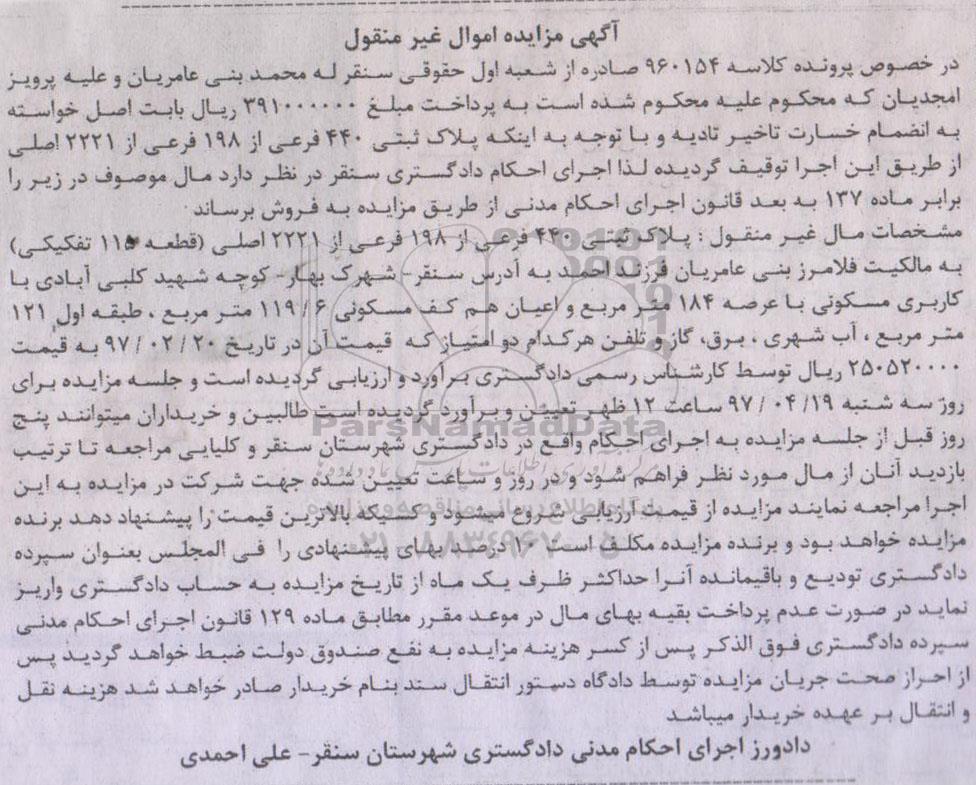 آگهی مزایده اموال غیر منقول
در خصوص پرونده کلاسه ۹۶۰۱۵۴ صادره از شعبه اول حقوقی سنقر له محمد بنی عامریان و علیه پرویز
امجدیان که محکوم علیه محکوم شده است به پرداخت مبلغ ۳۹۱۰۰۰۰۰۰ ریال بابت اصل خواسته
به انضمام خسارت تاخیر تادیه و با توجه به اینکه پلاک ثبتی ۴۴۰ فرعی از ۱۹۸ فرعی از ۲۲۲۱ اصلی
از طریق این اجرا توقیف گردیده لذا اجرای احکام دادگستری سنقر در نظر دارد مال موصوف در زیر را
برابر ماده ۱۳۷ به بعد قانون اجرای احکام مدنی از طریق مزایده به فروش برساند
مشخصات مال غیر منقول : پلاک ثبتی ۴۴۰ فرعی از ۱۹۸ فرعی از ۲۲۲۱ اصلی (قطعه تفکیکی)
به مالکیت فلامرز بنی عامریان فرزند احمد به آدرس سنقر- شهرک بهار- کوچه شهید کلبی آبادی با
کاربری مسکونی با عرصه ۱۸۴ متر مربع و اعیان هم کف مسکونی ۱۱۹/۶ متر مربع ، طبقه اول ۱۲۱
متر مربع ، آب شهری ، برق، گاز و تلفن هرکدام دو امتیاز که قیمت آن در تاریخ ۹۷/۰۲/۲۰ به قیمت
۲۵۰۵۲۰۰۰۰ ریال توسط کارشناس رسمی دادگستری برآورد و ارزیابی گردیده است و جلسه مزایده برای
روز سه شنبه ۹۷/۰۴/۱۹ ساعت ۱۲ ظهر تعیین و برآورد گردیده است طالبین و خریداران میتوانند پنج
روز قبل از جلسه مزایده به اجرای احکام واقع در دادگستری شهرستان سنقر و کلیایی مراجعه تا ترتیب
بازدید آنان از مال مورد نظر فراهم شود و در روز و ساعت تعیین شده جهت شرکت در مزایده به این
اجرا مراجعه نمایند مزایده از قیمت ارزیابی شروع میشود و کسیکه بالاترین قیمت را پیشنهاد دهد برنده
مزایده خواهد بود و برنده مزایده مکلف است ۱۰ درصد بهای پیشنهادی را فی المجلس بعنوان سپرده
دادگستری تودیع و باقیمانده آنرا حداکثر ظرف یک ماه از تاریخ مزایده به حساب دادگستری واریز
نماید در صورت عدم پرداخت بقیه بهای مال در موعد مقرر مطابق ماده ۱۲۹ قانون اجرای احکام مدنی
سپرده دادگستری فوق الذکر پس از کسر هزینه مزایده به نفع صندوق دولت ضبط خواهد گردید پس
از احراز صحت جریان مزایده توسط دادگاه دستور انتقال سند بنام خریدار صادر خواهد شد هزینه نقل
و انتقال بر عهده خریدار میباشد
دادورز اجرای احکام مدنی دادگستری شهرستان سنقر- علی احمدی
ParsNamadData